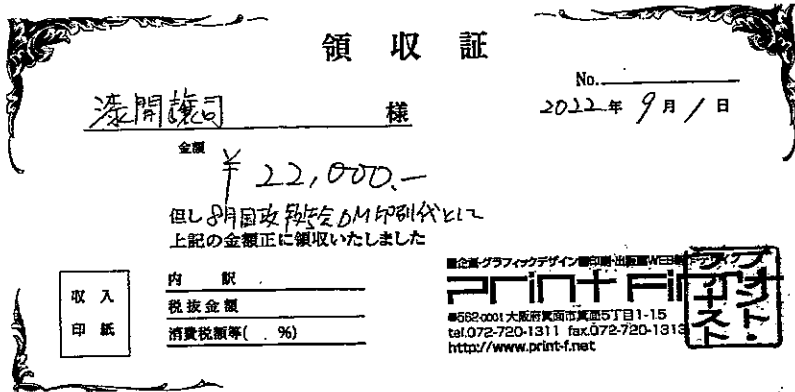 領収証
No.
漆開譲司 様
2022年 9月1日
金額
¥22,000.-
但し 8月国政報告会DM印刷代として
上記の金額正に領収いたしました
収入
印紙
内訳
税抜金額
消費税額等( %)
■企画・グラフィックデザイン■印刷・出版■WEB制作デザイン
Print First
〒562-0001 大阪府箕面市箕面5丁目1-15
tel.072-720-1311 fax.072-720-1313
http://www.print-f.net
プリント・
ファースト